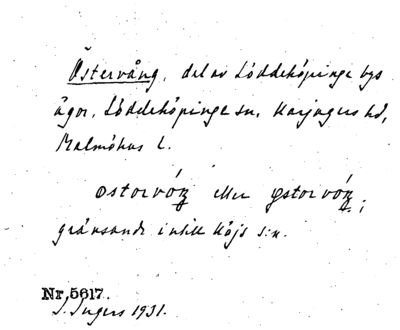 Östervång, del av Löddeköpinge bys
ägor, Löddeköpinge sn, Harjagers hd,
Malmöhus l.
ostorvóŋ eller østorvóŋ;
gränsande intill Höjs s:n.
Nr. 5617.
I. Ingers 1931.